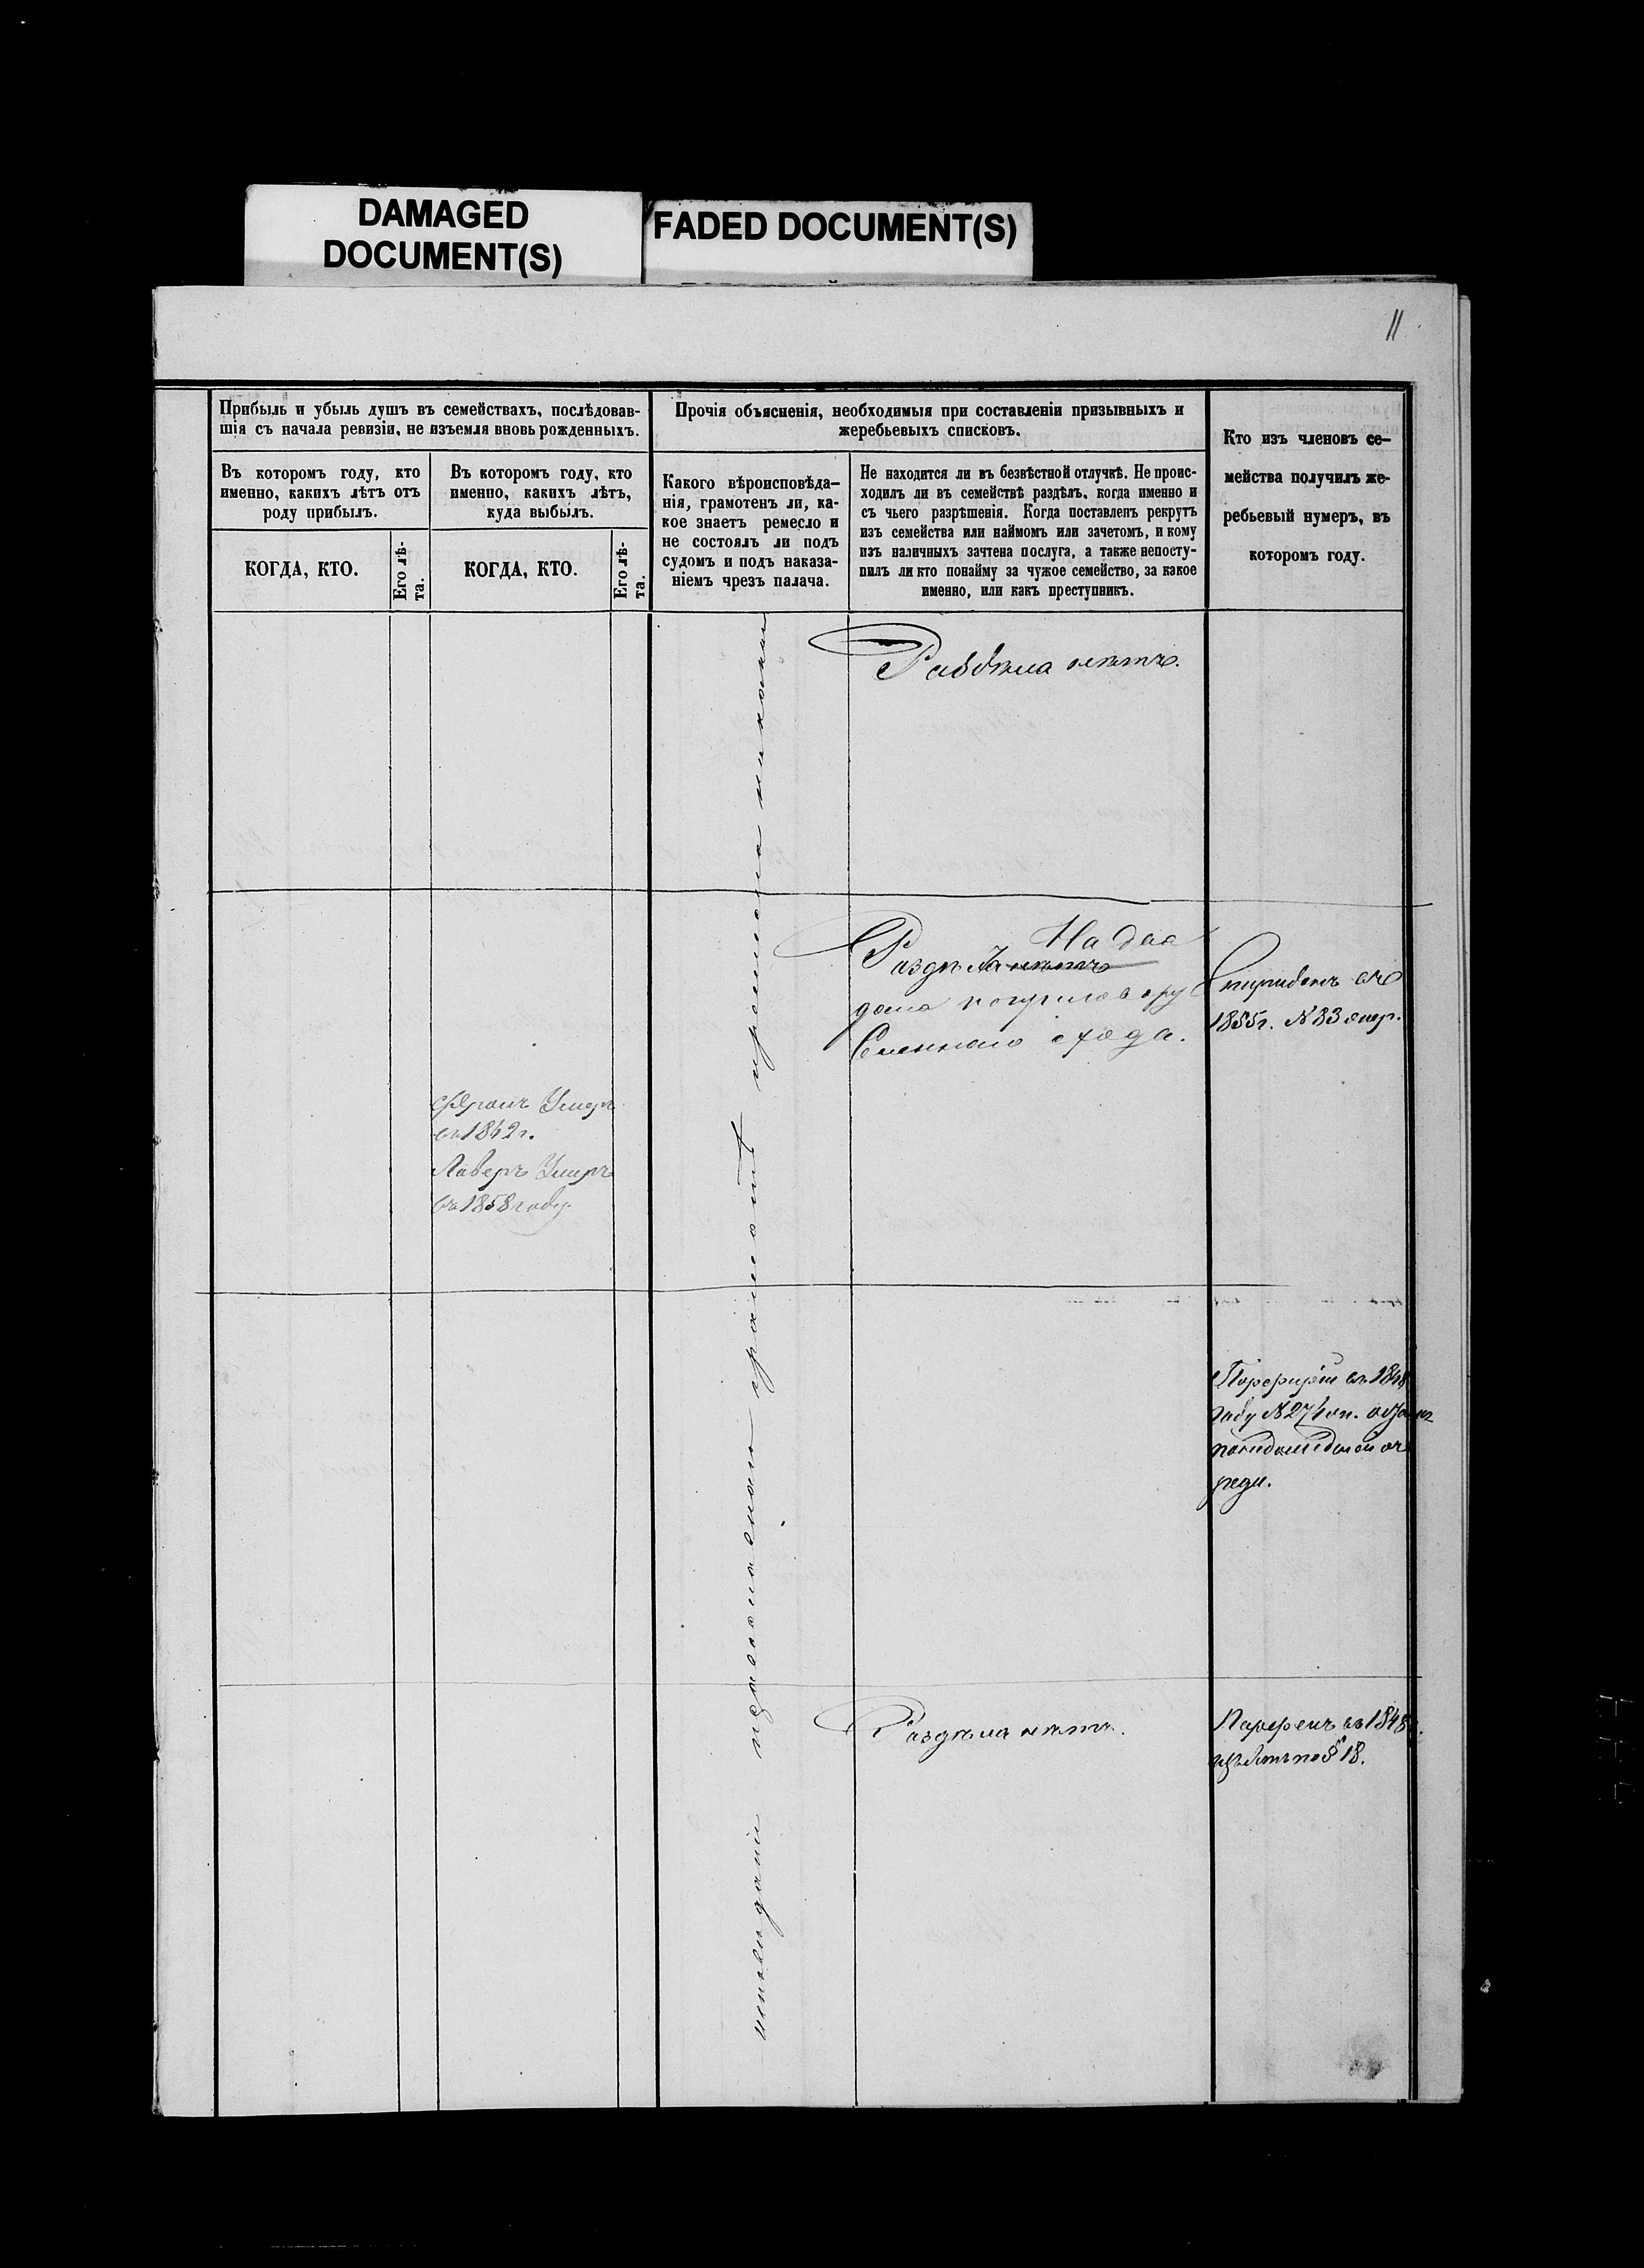 DAMAGED
DOCUMENT(S)
FADED DOCUMENT(S)
11
Прибыль и убыль душъ въ семействахъ, послѣдовав-
шія съ начала ревизіи, не изъемля вновь рожденныхъ.
Прочія объясненія, необходимыя при составленіи призывныхъ и
жеребьевыхъ списковъ.
Кто изъ членовъ се-
мейства получилъ же-
ребьевый нумеръ, въ
которомъ году.
Въ которомъ году, кто
именно, какихъ лѣтъ отъ
роду прибылъ.
Въ которомъ году, кто
именно, какихъ лѣтъ,
куда выбылъ.
Какого вѣроисповѣда-
нія, грамотенъ ли, ка-
кое знаетъ ремесло и
не состоялъ ли подъ
судомъ и подъ наказа-
ніемъ чрезъ палача.
Не находится ли въ безвѣстной отлучкѣ. Не проис-
ходилъ ли въ семействѣ раздѣлъ, когда именно и
съ чьего разрѣшенія. Когда поставленъ рекрутъ
изъ семейства или наймомъ или зачетомъ, и кому
изъ наличныхъ зачтена послуга, а также непосту-
пилъ ли кто понайму за чужое семейство, за какое
именно, или какъ преступникъ.
КОГДА, КТО.
Его лѣ-
та.
КОГДА, КТО.
Его лѣ-
та.
Раздѣла нѣтъ.
На два
Раздѣлъ нѣтъ
дома по приговору
схода.
Спиридонъ въ
1855г. N 83 очер.
Умеръ
въ 1842г.
Лаверъ Умеръ
въ 1858 году.
Порфирій въ 1848
году N 274
реди.
Раздѣла нѣтъ.
Парфенъ въ 1848
по § 18.
исповеданія православнаго грамоте ремесла